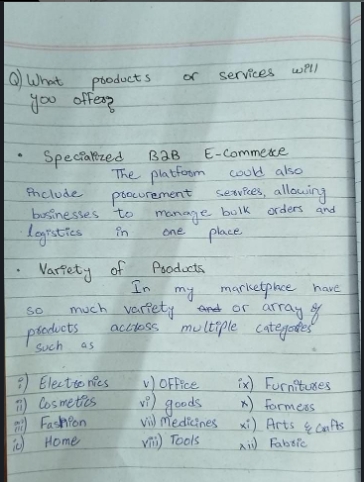 Q) What products or services will
you offer?
• Specialized B2B E-Commerce
The platform could also
include procurement services, allowing
businesses to manage bulk orders and
logistics in one place
• Variety of Products
In my marketplace have
so much variety and or array of
products accross multiple categories
such as
i) Electronics v) Office ix) Furnitures
ii) Cosmetics vi) goods x) Formers
iii) Fashion vii) Medicines xi) Arts & Crafts
iv) Home viii) Tools xii) Fabric